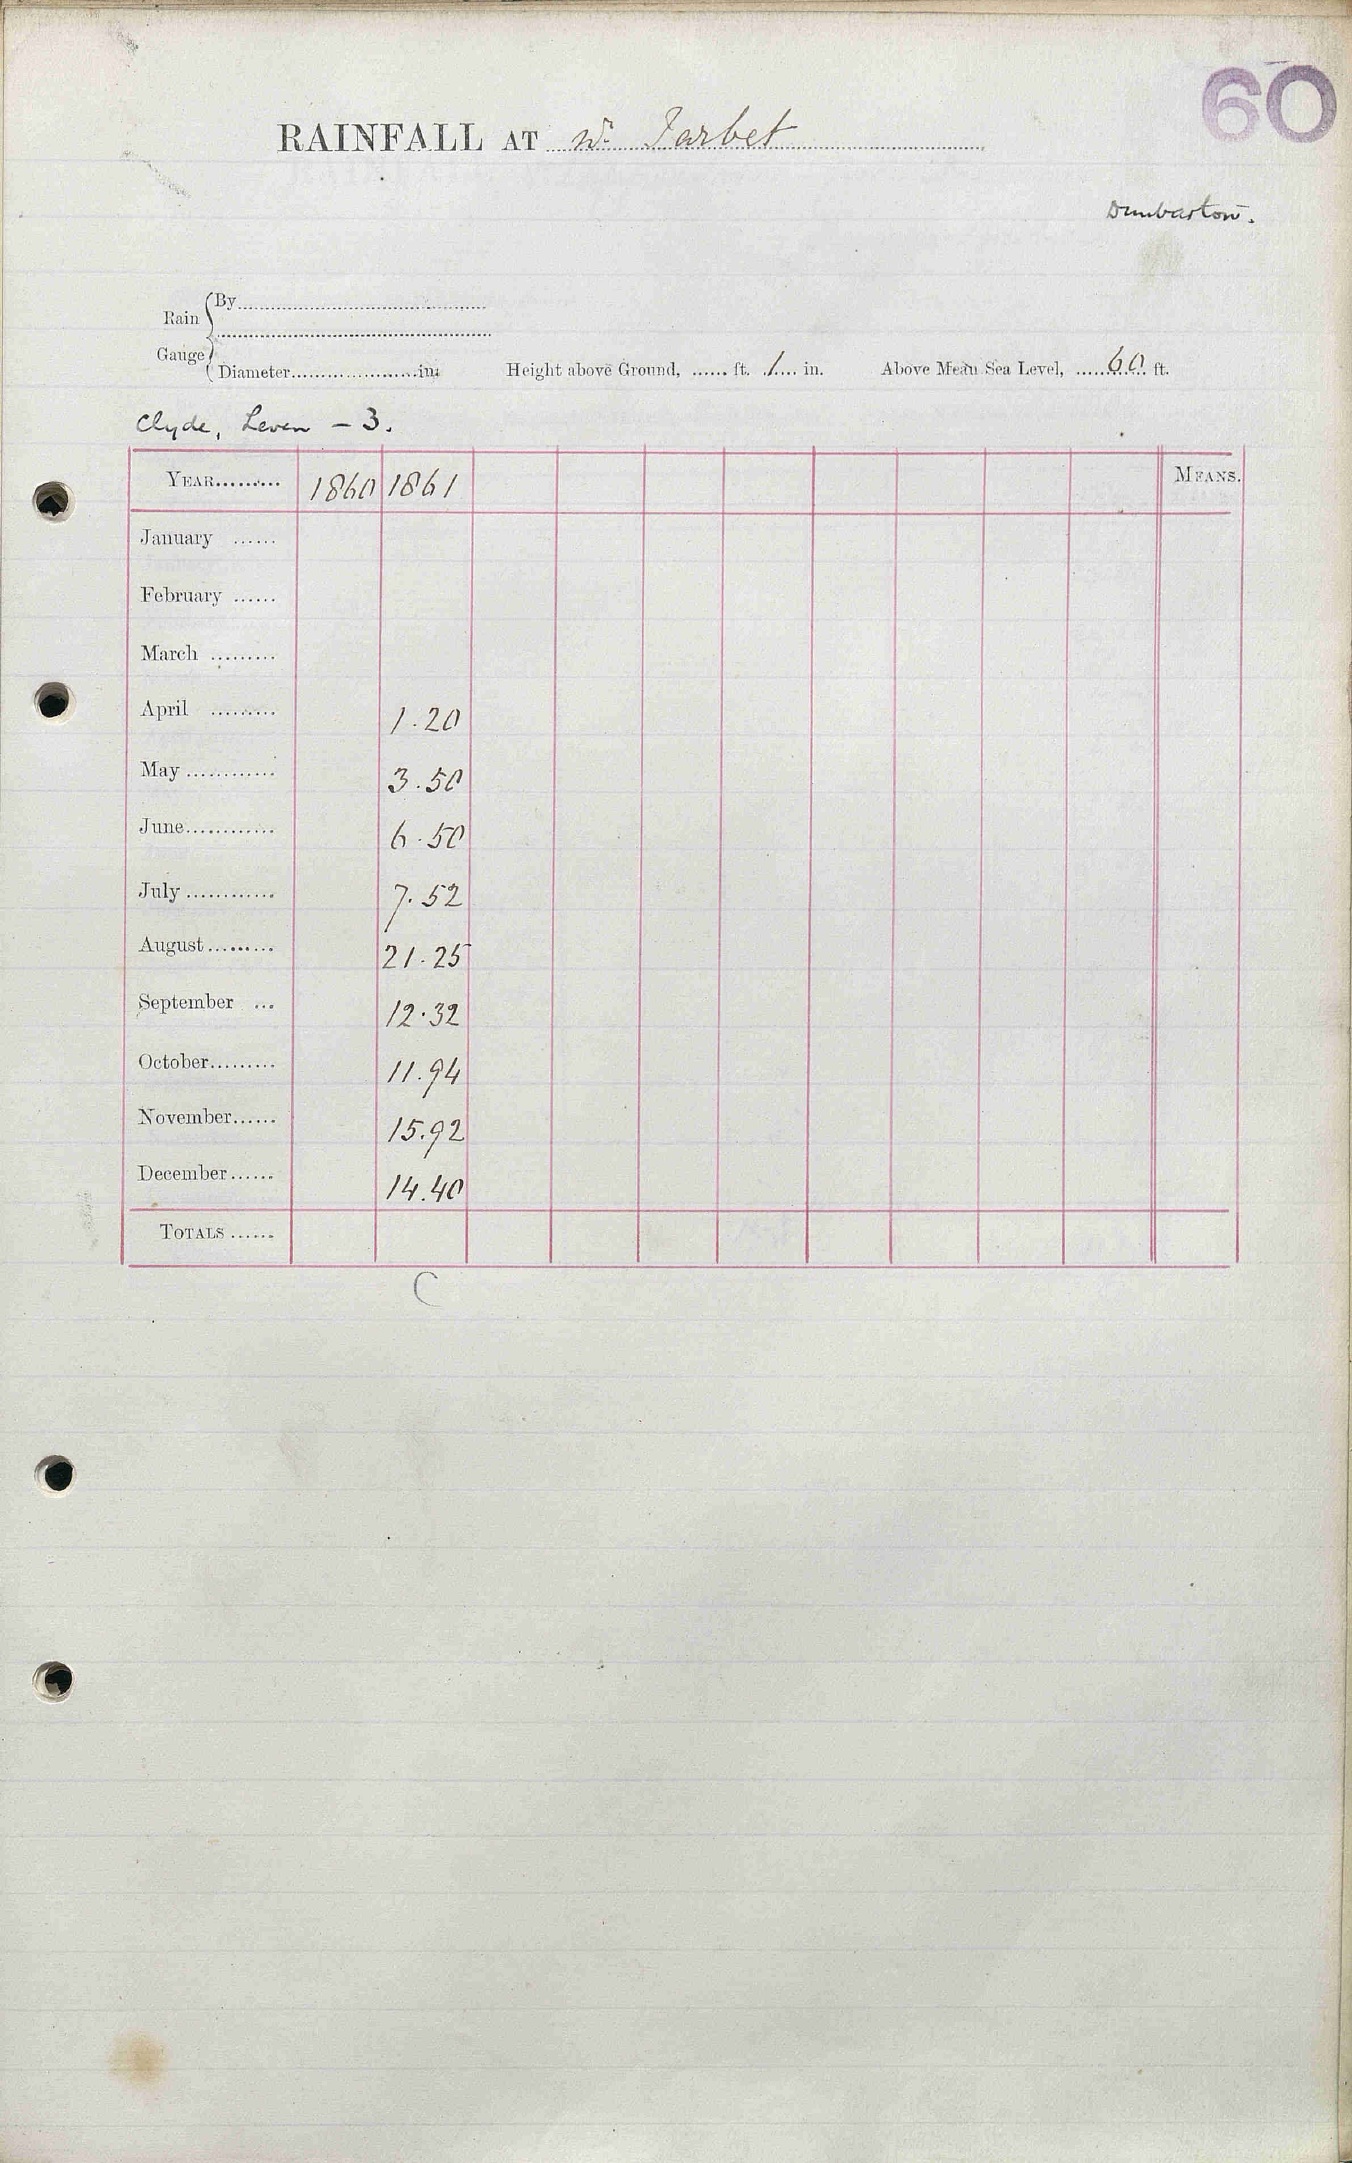 60
RAINFALL AT nr. Tarbet
Dumbarton.
Rain Gauge
By
Diameter in. Height above Ground, ft. 1 in. Above Mean Sea Level, 60 ft.
Clyde, Leven - 3.
YEAR 1860 1861 MEANS.
January
February
March
April 1.20
May 3.50
June 6.50
July 7.52
August 21.25
September 12.32
October 11.94
November 15.92
December 14.40
TOTALS
C